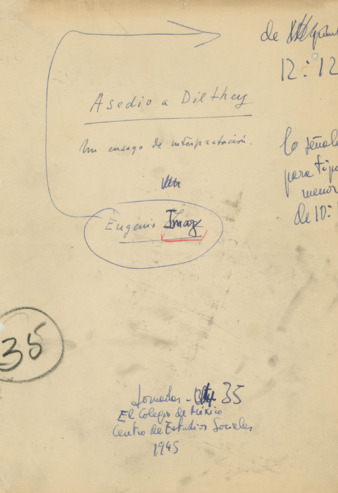 de
12:12
Asedio a Dilthey
Un ensayo de interpretación.
lo señala
para tipo
menor
de 10:
Eugenio Imaz
35
Jornadas - 35
El Colegio de México
Centro de Estudios Sociales
1945